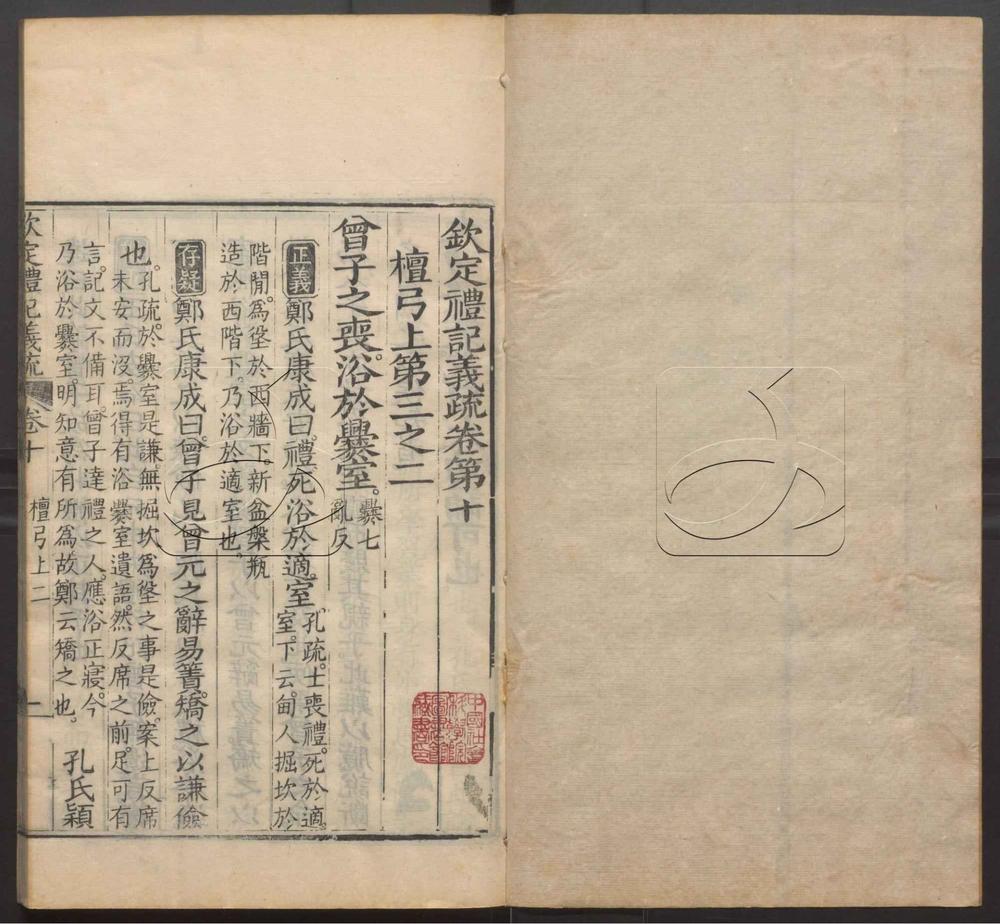 欽定禮記義疏卷第十
檀弓上第三之二
曾子之喪。浴於爨室。爨七
亂反
正義鄭氏康成曰。禮。死浴於適室。孔疏。士喪禮。死於適
室。下云。甸人掘坎於
階閒。爲垼於西牆下。新盆槃瓶
造於西階下。乃浴於適室也。
存疑鄭氏康成曰。曾子見曾元之辭易簀。矯之以謙儉
也。孔疏。於爨室是謙。無掘坎爲垼之事是儉。案上反席
未安而沒。焉得有浴爨室遺語。然反席之前。足可有
言。記文不備耳。曾子達禮之人。應浴正寢。今
乃浴於爨室。明知意有所爲。故鄭云矯之也。孔氏穎
欽定禮記義疏 卷十 檀弓上二 一
中國社會
科學院
圖書館
藏書印